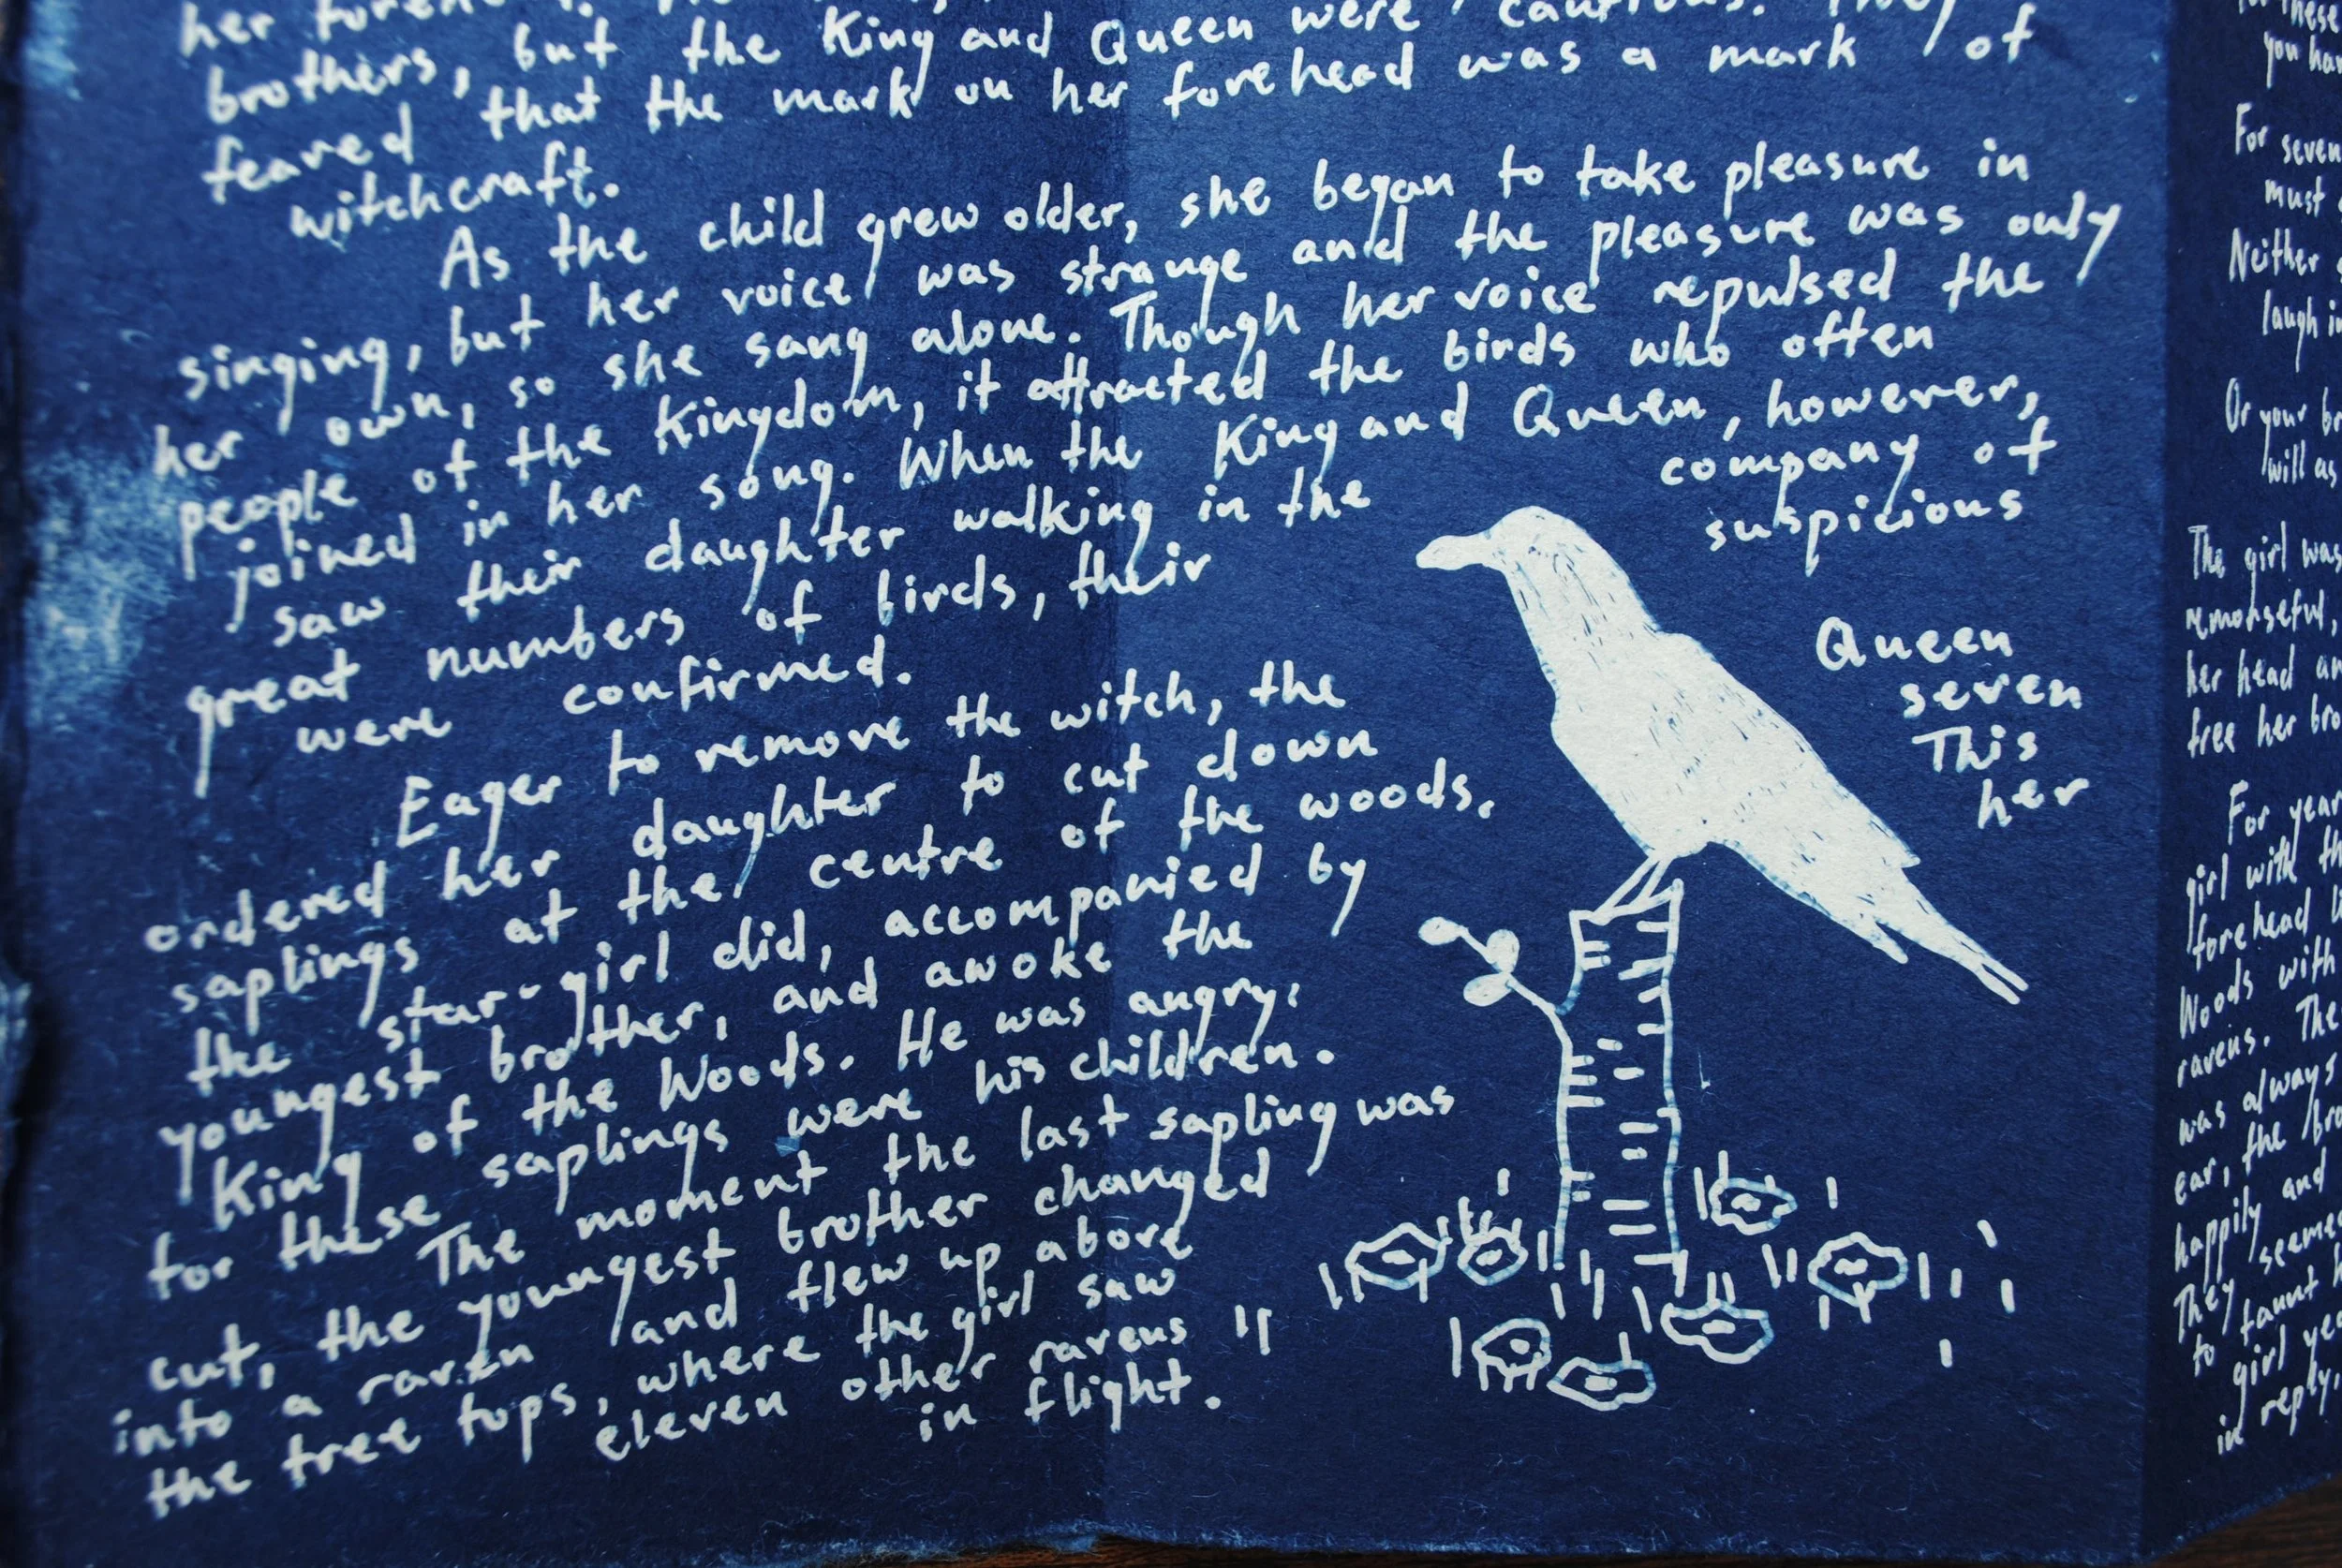 her
brothers, but the King and Queen were cautious. They
feared that the mark on her forehead was a mark of
witchcraft.
As the child grew older, she began to take pleasure in
singing, but her voice was strange and the pleasure was only
her own, so she sang alone. Though her voice repulsed the
people of the Kingdom, it attracted the birds who often
joined in her song. When the King and Queen, however,
saw their daughter walking in the company of
great numbers of birds, their suspicious
were confirmed.
Eager to remove the witch, the Queen
ordered her daughter to cut down seven
saplings at the centre of the woods. This
the star-girl did, accompanied by her
youngest brother, and awoke the
King of the Woods. He was angry,
for these saplings were his children.
The moment the last sapling was
cut, the youngest brother changed
into a raven and flew up above
the tree tops, where the girl saw
eleven other ravens
in flight.
these
you
For seven
must
Neither
laugh
Or your
will as
The girl was
remorseful,
her head
free her
For
girl with
forehead
Woods with
ravens. The
was always
ear, the
happily and
They
to taunt
girl
in reply.